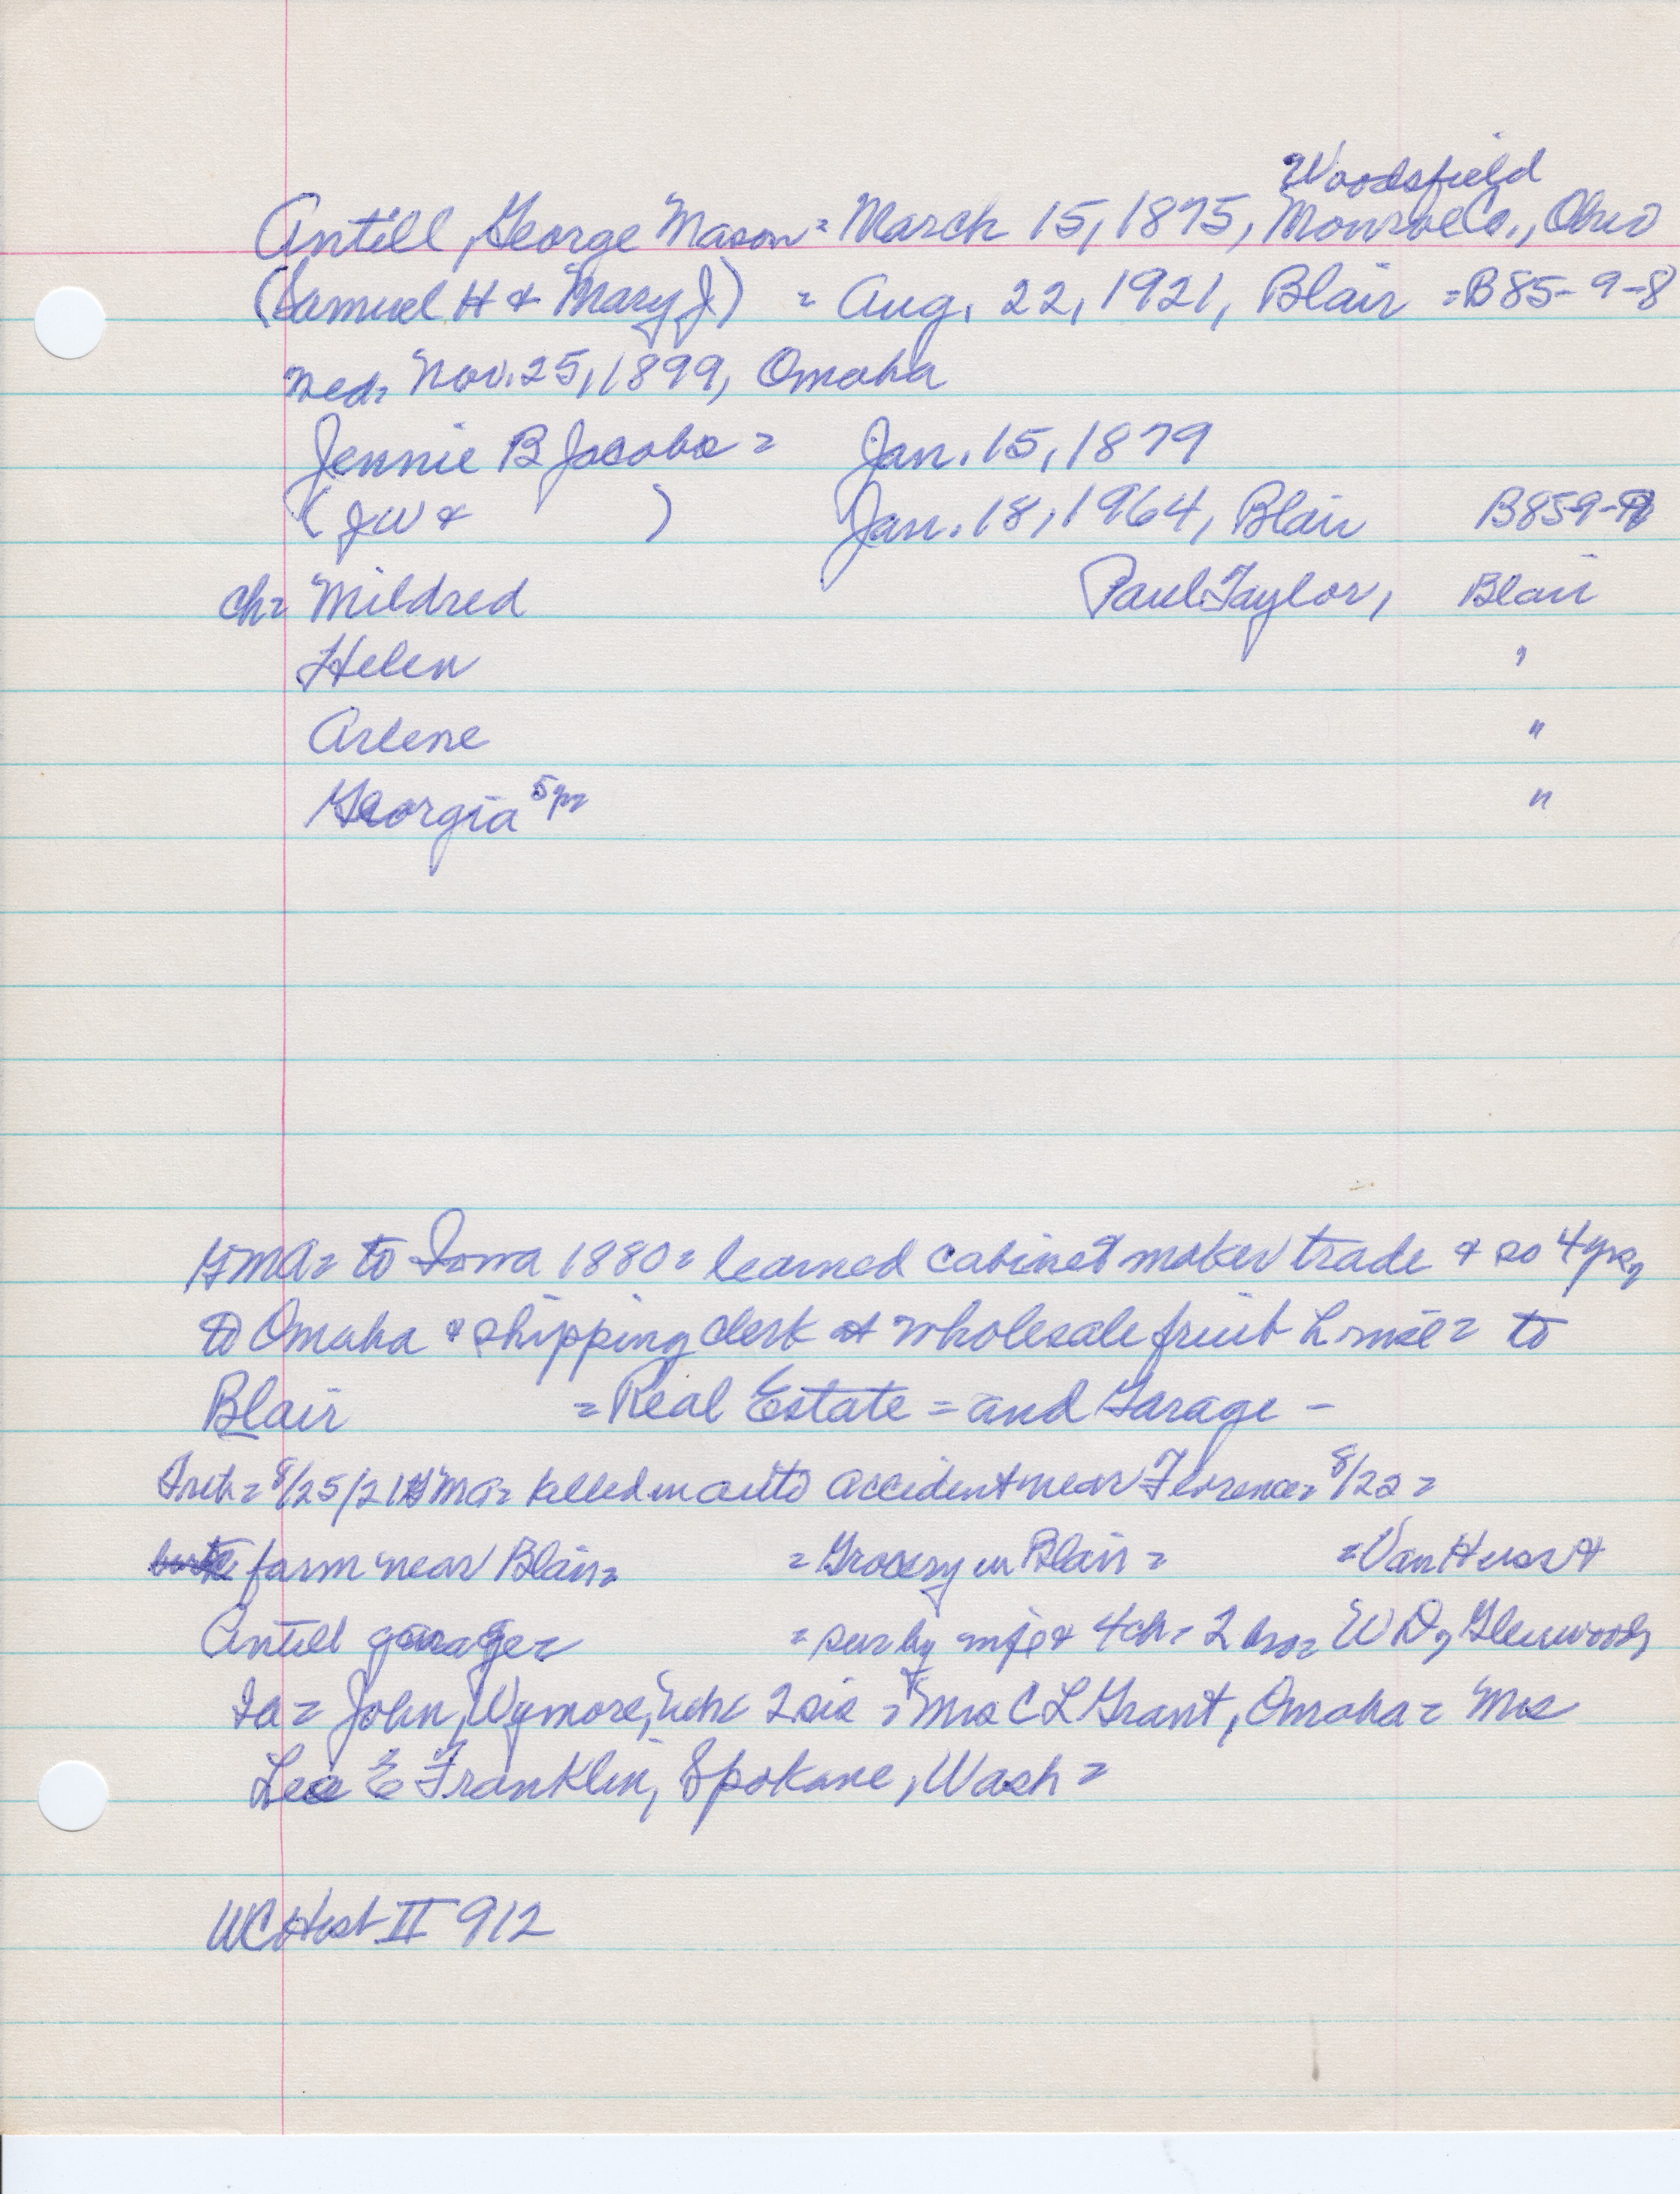 Woodsfield
Antill, George Mason = March 15, 1875, Monroe Co., Ohio
(Samuel H & Mary J) = Aug. 22, 1921, Blair = B85-9-8
med= Nov. 25, 1899, Omaha
Jennie B Jacobs = Jan. 15, 1879
(JW & ) Jan. 18, 1964, Blair B85-9-
ch= Mildred Paul Taylor, Blair
Helen "
Arlene "
Georgia 5yr "
GMA= to Iowa 1880= learned cabinet maker trade & so 4 yrs,
to Omaha & shipping clerk at wholesale fruit = to
Blair = Real Estate = and Garage -
= 8/25/21 GMA= killed in auto accident near Florence= 8/22 =
farm near Blair= = Grocery in Blair = = Van Huss &
Antill garage= = sur by wife & 4ch= 2 bro= W D, Glenwood,
Ia = John, Wymore, Neb 2 sis = Mrs C L Grant, Omaha = Mrs
Lee E Franklin, Spokane, Wash =
WC Hist II 912